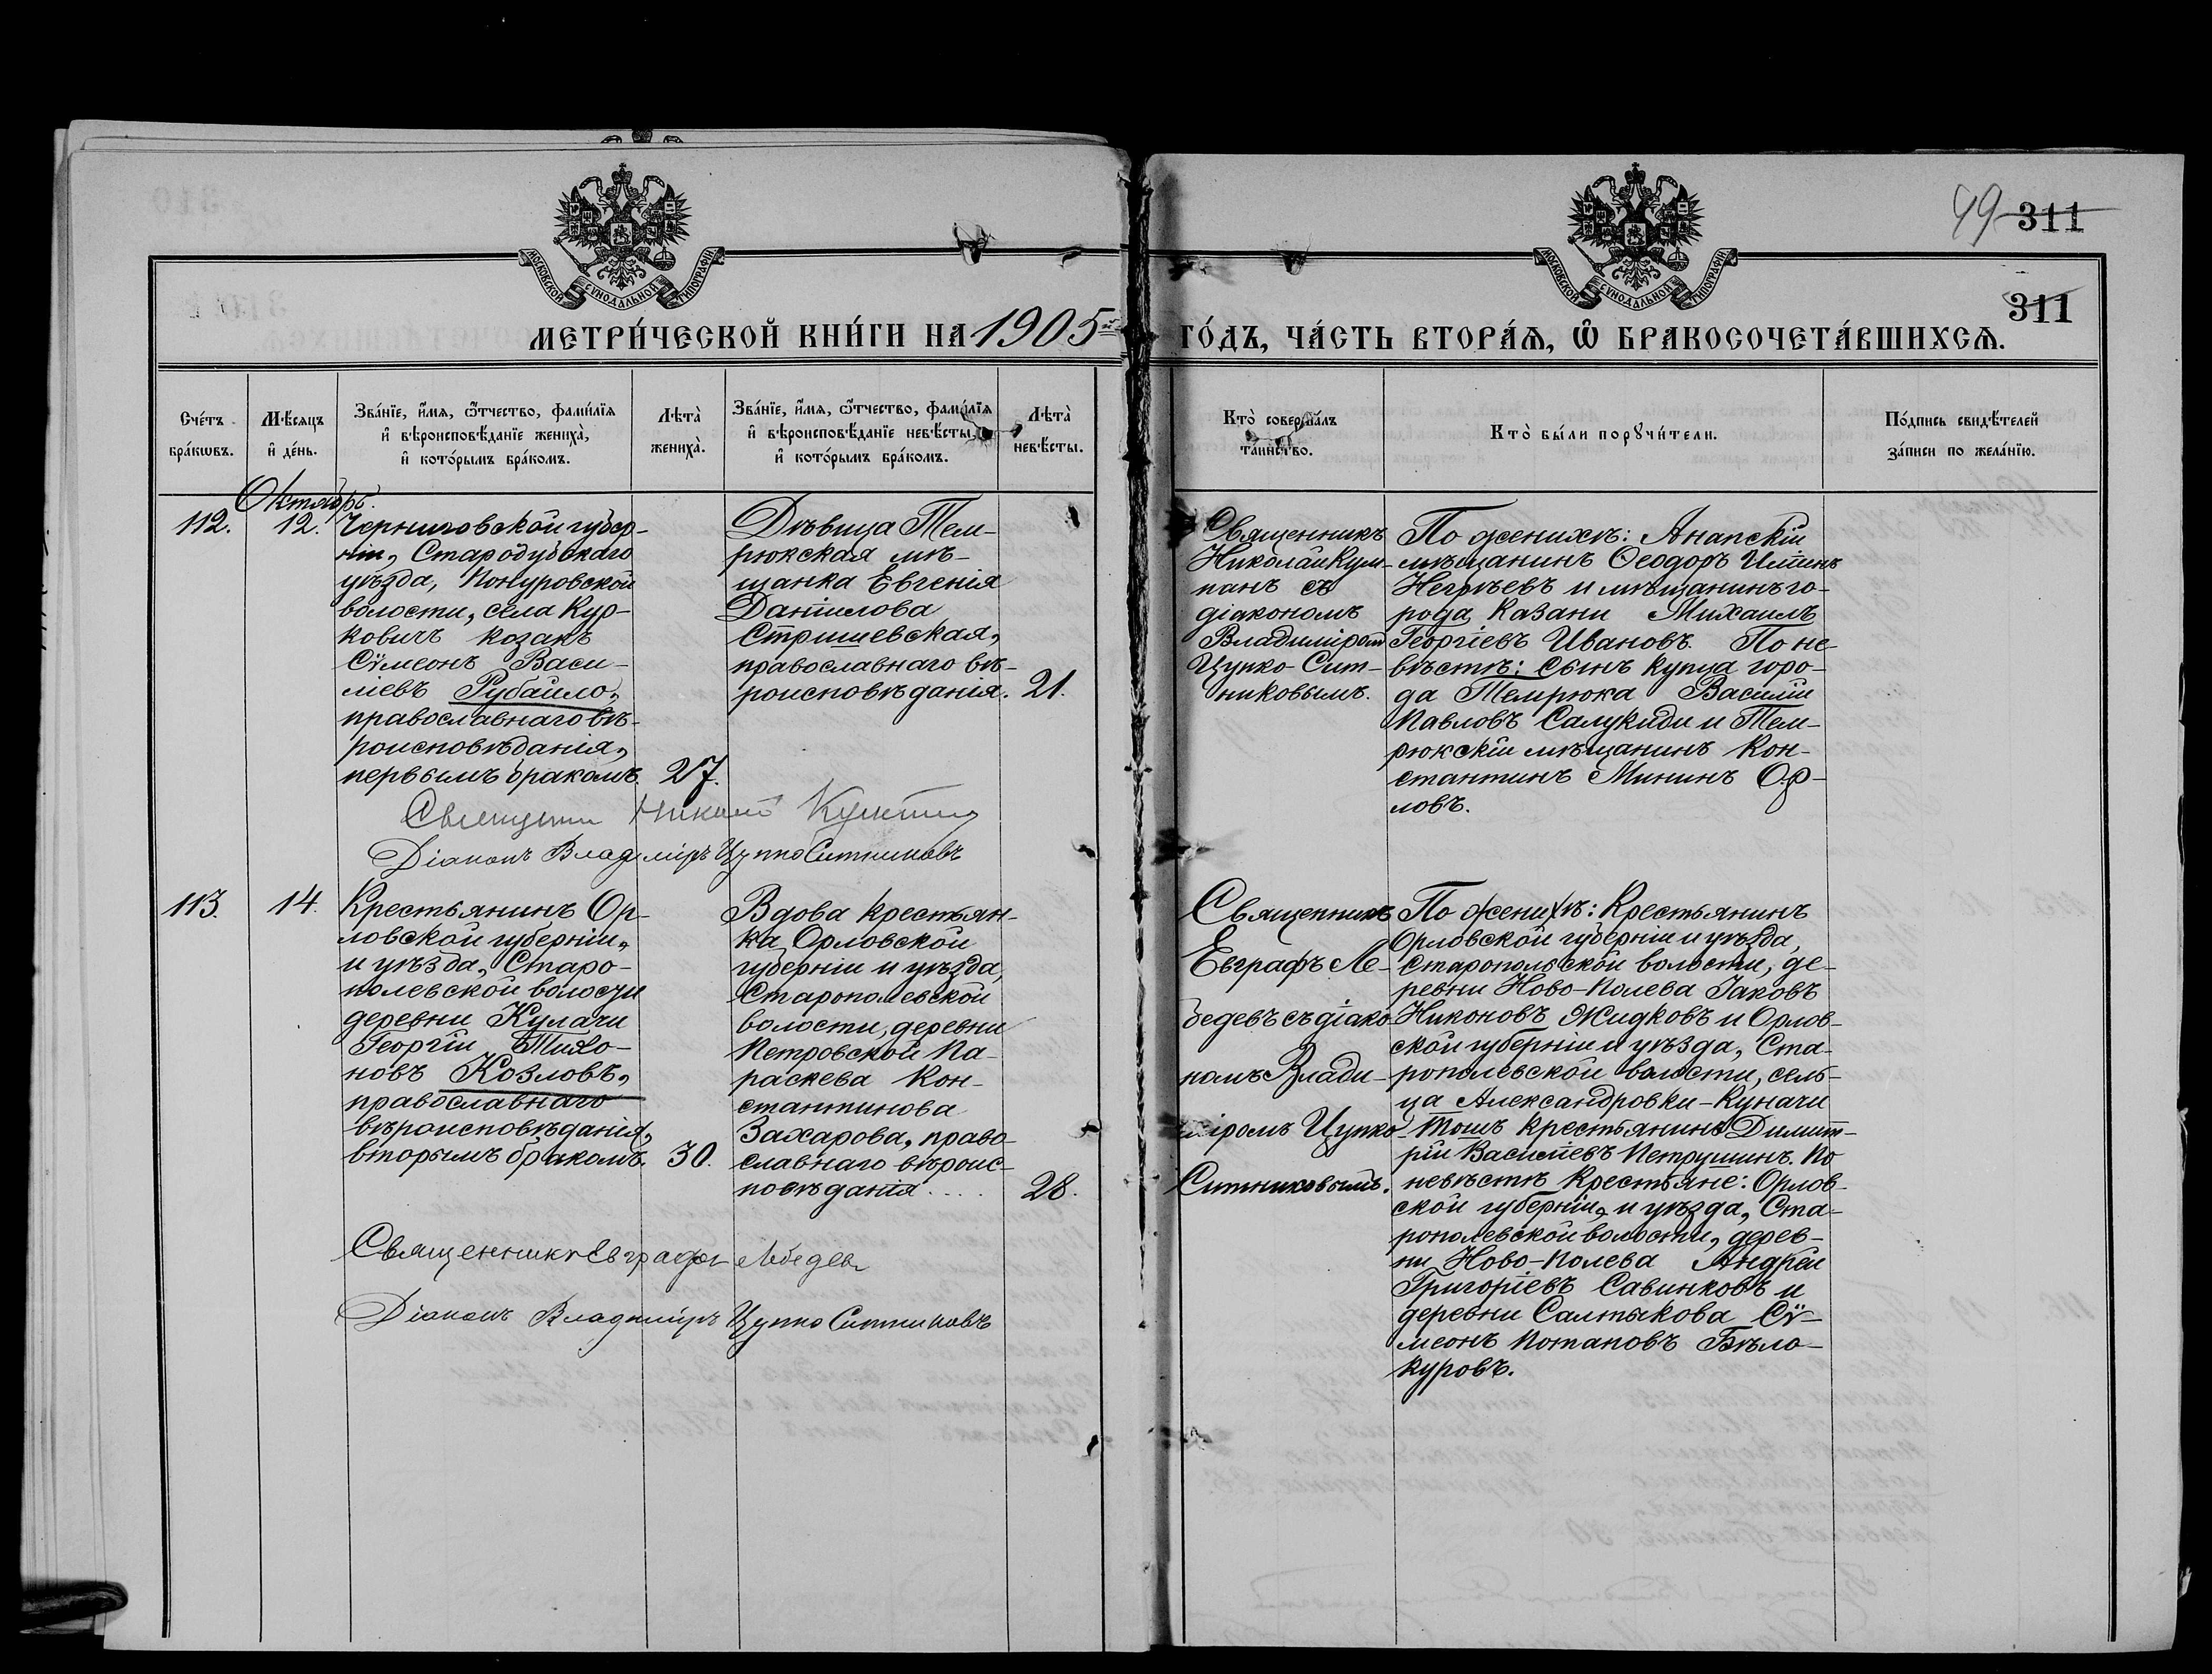 49 311
311
МОСКОВСКОЙ СѴНОДАЛЬНОЙ ТИПОГРАФІИ
МОСКОВСКОЙ СѴНОДАЛЬНОЙ ТИПОГРАФІИ
МЕТРИ́ЧЕСКОЙ КНИ́ГИ НА 1905й ГО́ДЪ, ЧА́СТЬ ВТОРА́Ѧ, Ѡ҆ БРАКОСОЧЕТА́ВШИХСѦ.
Сче́тъ
бра́кѡвъ.
Мѣ́сяцъ
и҆ де́нь.
Зва́нїе, и҆́мѧ, ѻ҆́тчество, фами́лїѧ
и҆ вѣроисповѣ́данїе жениха̀,
и҆ кото́рымъ бра́комъ.
Лѣта̀
жениха̀.
Зва́нїе, и҆́мѧ, ѻ҆́тчество, фами́лїѧ
и҆ вѣроисповѣ́данїе невѣ́сты,
и҆ кото́рымъ бра́комъ.
Лѣта̀
невѣ́сты.
Кто̀ соверша́лъ
та́инство.
Кто̀ бы́ли порꙋчи́тели.
По́дпись свидѣ́телей
за́писи по жела́нїю.
Октябрь.
112.
12.
Черниговской губер-
ніи, Стародубскаго
уѣзда, Понуровской
волости, села Кур-
ковичъ козакъ
Сѵмеонъ Васи-
ліевъ Рубайло,
православнаго вѣ-
роисповѣданія,
первымъ бракомъ.
27.
Дѣвица Тем-
рюкская мѣ-
щанка Евгенія
Даніилова
Стришевская,
православнаго вѣ-
роисповѣданія.
21.
Священникъ
Николай Кум-
панъ съ
діакономъ
Владиміром
Цупко-Сит-
никовымъ.
По женихѣ: Анапскій
мѣщанинъ Ѳеодоръ
и мѣщанинъ го-
рода Казани Михаилъ
Георгіевъ Ивановъ. По не-
вѣстѣ: сынъ купца горо-
да Темрюка Василій
Павловъ Салукиди и Тем-
рюкскій мѣщанинъ Кон-
стантинъ Мининъ Ор-
ловъ.
Діаконъ Владиміръ Цупко Ситниковъ
113.
14.
Крестьянинъ Ор-
ловской губерніи,
и уѣзда, Старо-
полевской волости
деревни Кулачи
Георгій Тихо-
новъ Козловъ,
православнаго
вѣроисповѣданія,
вторымъ бракомъ.
30.
Вдова крестьян-
ка Орловской
губерніи и уѣзда,
Старополевской
волости, деревни
Петровской Па-
раскева Кон-
стантинова
Захарова, право-
славнаго вѣроис-
повѣданія....
28.
Священникъ
Евграфъ Ле-
бедевъ съ діако
номъ Влади-
міромъ Цупко-
Ситниковымъ.
По женихѣ: Крестьянинъ
Орловской губерніи и уѣзда,
Старопольской волости, де-
ревни Ново-Полева Іаковъ
Никоновъ Жидковъ и Орлов-
ской губерніи и уѣзда, Ста-
рополевской волости, сель-
ца Александровки-Куначи
тожъ крестьянинъ Димит-
рій Василіевъ Петрушинъ. По
невѣстѣ Крестьяне: Орлов-
ской губерніи, и уѣзда, Ста-
рополевской волости, дерев-
ни Ново-Полева Андрей
Григоріевъ Савинковъ и
деревни Салтыкова Сѵ-
меонъ Потаповъ Бѣло-
куровъ.
Священникъ Евграфъ Лебедевъ
Діаконъ Владиміръ Цупко Ситниковъ